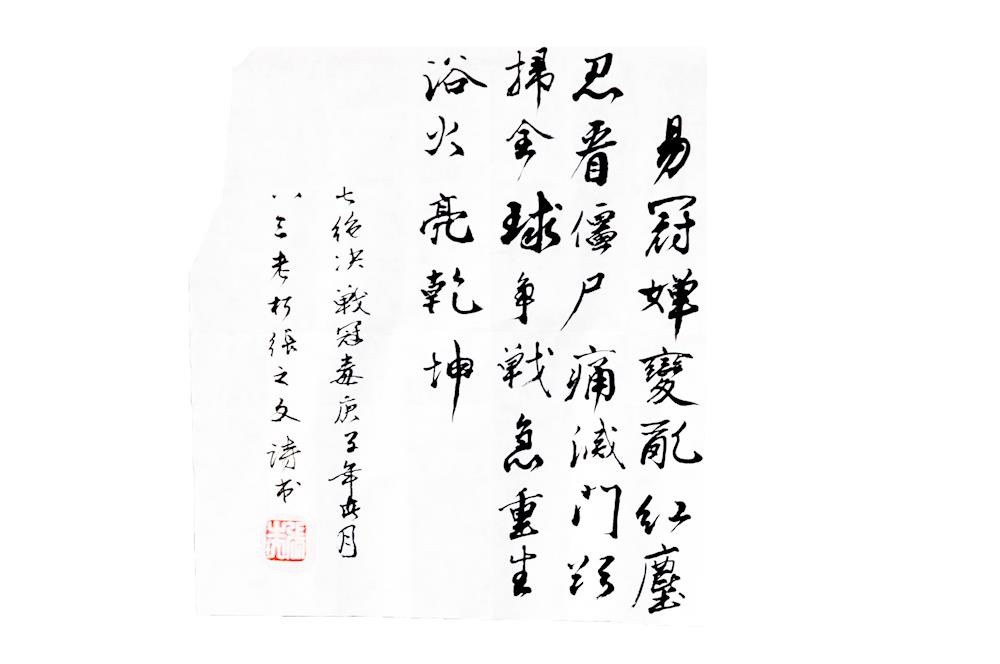 易冠嬋變亂紅塵
忍看僵尸痛滅門
掃全球争戦急重生
浴火亮乾坤
七絶决戰冠毒庚子年月
八三老朽張之文詩书